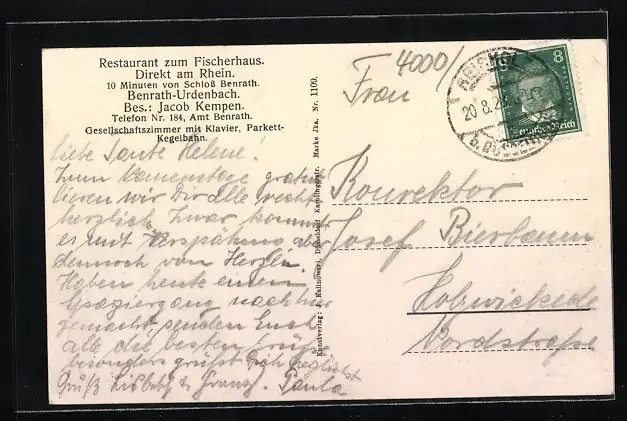 Restaurant zum Fischerhaus.
Direkt am Rhein.
10 Minuten von Schloß Benrath.
Benrath-Urdenbach.
Bes.: Jacob Kempen.
Telefon Nr. 184, Amt Benrath.
Gesellschaftszimmer mit Klavier, Parkett-
Kegelbahn.
Liebe Tante Helene!
Zum Namenstage gratu-
lieren wir Dir alle recht
herzlich. Zwar kommt
es mit Verspätung aber
dennoch von Herzen.
Haben heute einen
Spaziergang nach hier
gemacht, senden Euch
alle die besten Grüße
besonders grüßt Dich herzlichst
Paula
Kunstverlag: J. Kalinowski, Düsseldorf Karolingerstr. Marke Jka. Nr. 1109.
4000/
Frau
Konrektor
Josef Bierbaum
Holzwickede
Nordstraße
20.8.2
8
Deutsches Reich